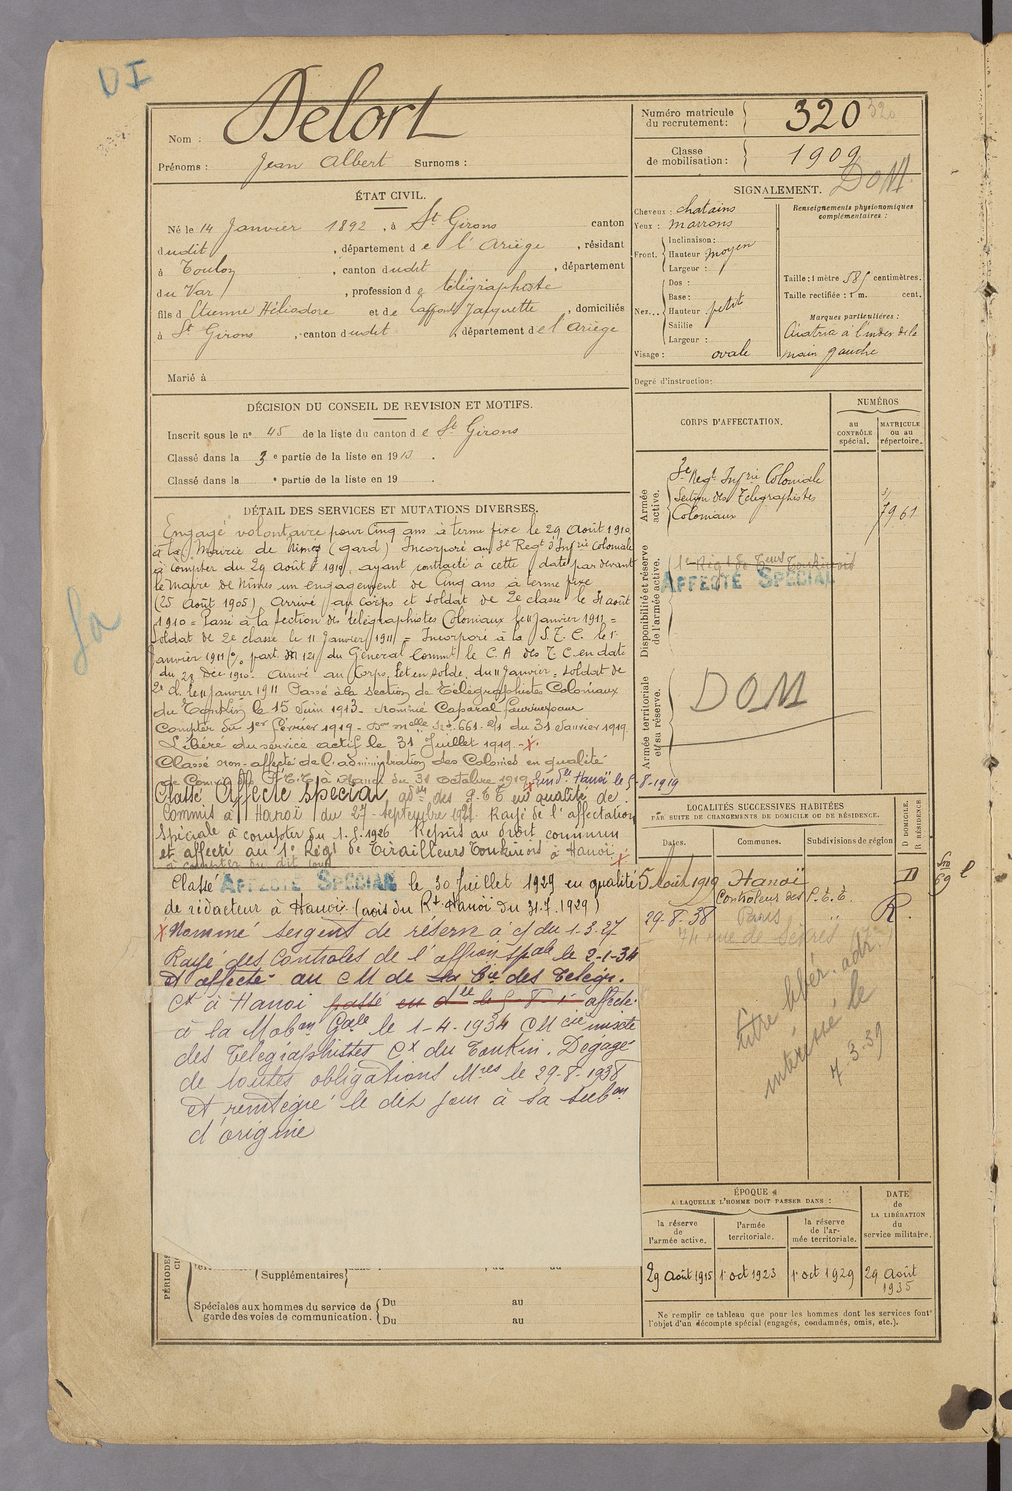 DI
Nom : Delort
Prénoms : Jean Albert Surnoms :
Numéro matricule du recrutement : 320
320
Classe de mobilisation : 1909
DOM.
ÉTAT CIVIL.
Né le 14 Janvier 1892, à St Girons canton
dudit, département de l'Ariège, résidant
à Toulon, canton dudit, département
du Var, profession de télégraphiste
fils d Etienne Héliodore et de Laffont Jacquette, domiciliés
à St Girons, canton dudit, département de l'Ariège
Marié à
SIGNALEMENT.
Cheveux : chatains
Yeux : marrons
Front. Inclinaison :
Hauteur moyen
Largeur :
Nez... Dos :
Base :
Hauteur petit
Saillie
Largeur :
Visage : ovale
Renseignements physionomiques complémentaires :
Taille : 1 mètre 585 centimètres.
Taille rectifiée : 1 m. cent.
Marques particulières :
Cicatrice à l'index de la
main gauche
Degré d'instruction :
DÉCISION DU CONSEIL DE REVISION ET MOTIFS.
Inscrit sous le n° 45 de la liste du canton de St Girons
Classé dans la 3e partie de la liste en 1913.
Classé dans la e partie de la liste en 19 .
CORPS D'AFFECTATION.
NUMÉROS
au CONTRÔLE spécial.
MATRICULE ou au répertoire.
Armée active.
3e Regt Infrie Coloniale
Section des Télégraphistes
Coloniaux
7961
Disponibilité et réserve de l'armée active.
1e Régt de Teurs Tonkinois
AFFECTÉ SPÉCIAL
Armée territoriale et sa réserve.
DOM
DÉTAIL DES SERVICES ET MUTATIONS DIVERSES.
Engagé volontaire pour Cinq ans à terme fixe le 29 Août 1910
à la Mairie de Nimes (Gard) Incorporé au 3e Regt d'Infrie Coloniale
à compter du 29 août 1910, ayant contracté à cette date par devant
le Maire de Nimes un engagement de Cinq ans à terme fixe
(25 Août 1905) Arrivé au Corps et soldat de 2e classe le 31 août
1910 = Passé à la Section de télégraphistes Coloniaux le 11 janvier 1911 =
Soldat de 2e classe le 11 Janvier 1911 = Incorporé à la S.T.C. le 1r
Janvier 1911 part. M 121 du Général Commt le C.A des T.C en date
du 28 Dec 1910. Arrivé au Corps, let en solde, du 11 Janvier. Soldat de
2e cl. le 11 janvier 1911 Passé à la section de Télégraphistes Coloniaux
du Tonkin le 15 Juin 1913. Nommé Caporal fourrier pour
Compter du 1er février 1919 - du 31 Janvier 1919
Libéré du service actif le 31 Juillet 1919 - x.
Classé non-affecté de l'administration des Colonies en qualité
de Commis à Hanoï du 31 octobre 1919 Hanoï le 5-8-1919
Classé Affecté spécial des P.T.T en qualité de
Commis à Hanoi du 27 septembre 1921. Rayé de l'affectation
Spéciale à compter du 1.5.1926 Repris au droit commun
et affecté au 1e Régt de Tirailleurs Tonkinois à Hanoï x
à compter du dit jour
Classé AFFECTÉ SPÉCIAL le 30 Juillet 1929 en qualité
de rédacteur à Hanoï (avis du Rt Hanoï du 31.7.1929)
x Nommé sergent de réserve à c/ du 1-3-27
Rayé des Controles de l'affion spale le 2-1-34
et affecté au CM de la Cie des Telégr.
Cx à Hanoi passé affecté
à la Mobon Gale le 1-4-1934 CM cie mixte
des Telegraphistes Cx du Tonkin. Degagé
de toutes obligations Mres le 29-8-1938
et réintégré le dit jour à sa subon
d'origine
LOCALITÉS SUCCESSIVES HABITÉES
PAR SUITE DE CHANGEMENTS DE DOMICILE OU DE RÉSIDENCE.
Dates.
Communes.
Subdivisions de région
D DOMICILE, R RÉSIDENCE.
5 Août 1919 Hanoï D
Controleur des P.T.T.
29-8-38 Paris " R.
74 rue de Sèvres
titre libér. adr.
intéressé le
7-3-39
ÉPOQUE
A LAQUELLE L'HOMME DOIT PASSER DANS :
la réserve de l'armée active.
l'armée territoriale.
la réserve de l'armée territoriale.
DATE de LA LIBÉRATION du service militaire.
29 Août 1915
1e oct 1923
1e oct 1929
29 Août 1935
Ne remplir ce tableau que pour les hommes dont les services font l'objet d'un décompte spécial (engagés, condamnés, omis, etc.).
PÉRIODES
Supplémentaires
Spéciales aux hommes du service de garde des voies de communication.
Du au
Du au